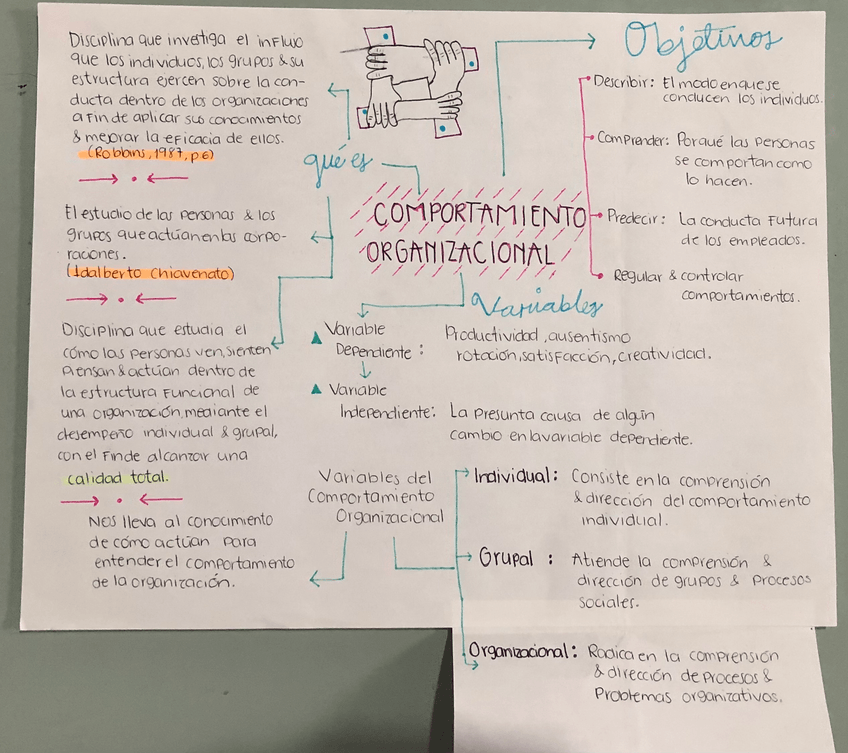 Disciplina que investiga el influjo
que los individuos, los grupos & su
estructura ejercen sobre la con-
ducta dentro de los organizaciones
a fin de aplicar sus conocimientos
& mejorar la eficacia de ellos.
(Robbins, 1987, p6)
qué es
El estudio de las personas & los
grupos que actúan en las corpo-
raciones.
(Idalberto Chiavenato)
Disciplina que estudia el
cómo las personas ven, sienten
piensan & actúan dentro de
la estructura funcional de
una organización, mediante el
desempeño individual & grupal,
con el fin de alcanzar una
calidad total.
Nos lleva al conocimiento
de cómo actúan para
entender el comportamiento
de la organización.
COMPORTAMIENTO
ORGANIZACIONAL
Objetivos
Describir: El modo en que se
conducen los individuos.
Comprender: Porqué las personas
se comportan como
lo hacen.
Predecir: La conducta futura
de los empleados.
Regular & controlar
comportamientos.
Variables
Variable
Dependiente: Productividad, ausentismo
rotación, satisfacción, creatividad.
Variable
Independiente: La presunta causa de algún
cambio en la variable dependiente.
Variables del
Comportamiento
Organizacional
Individual: Consiste en la comprensión
& dirección del comportamiento
individual.
Grupal: Atiende la comprensión &
dirección de grupos & procesos
sociales.
Organizacional: Radica en la comprensión
& dirección de procesos &
problemas organizativos.